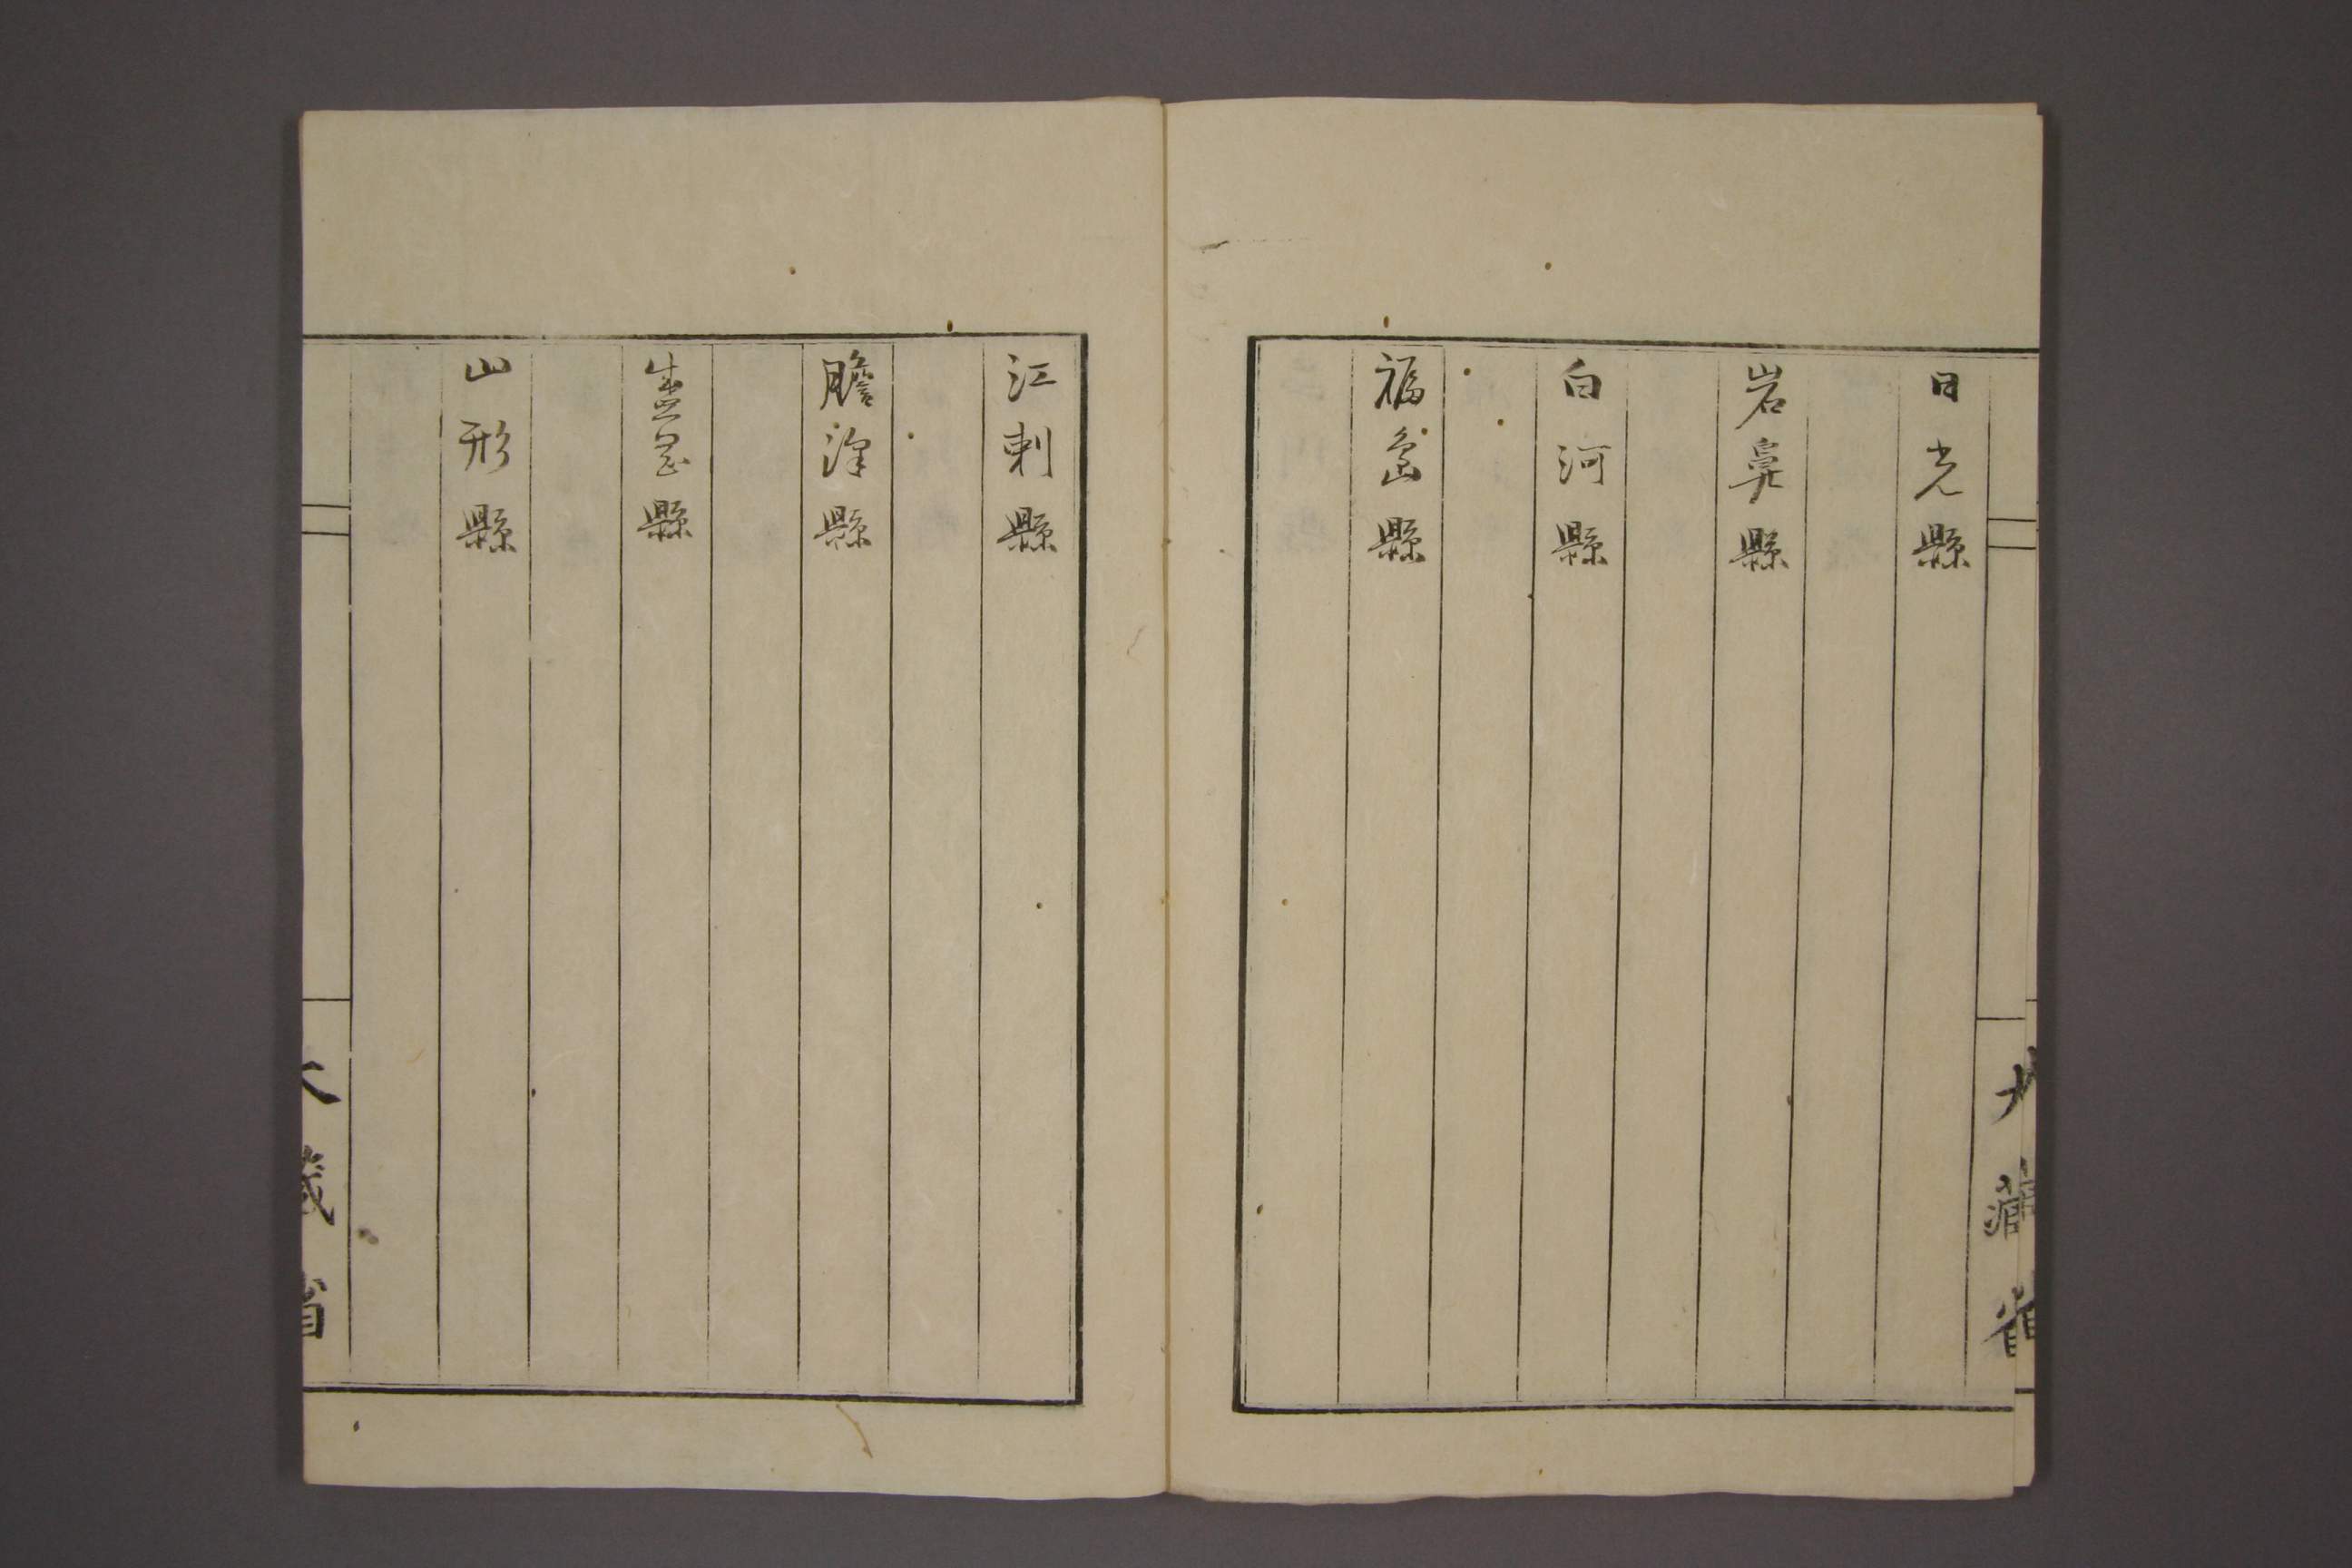 大藏省
日光縣
岩鼻縣
白河縣
福島縣
江刺縣
膽澤縣
盛岡縣
山形縣
大藏省